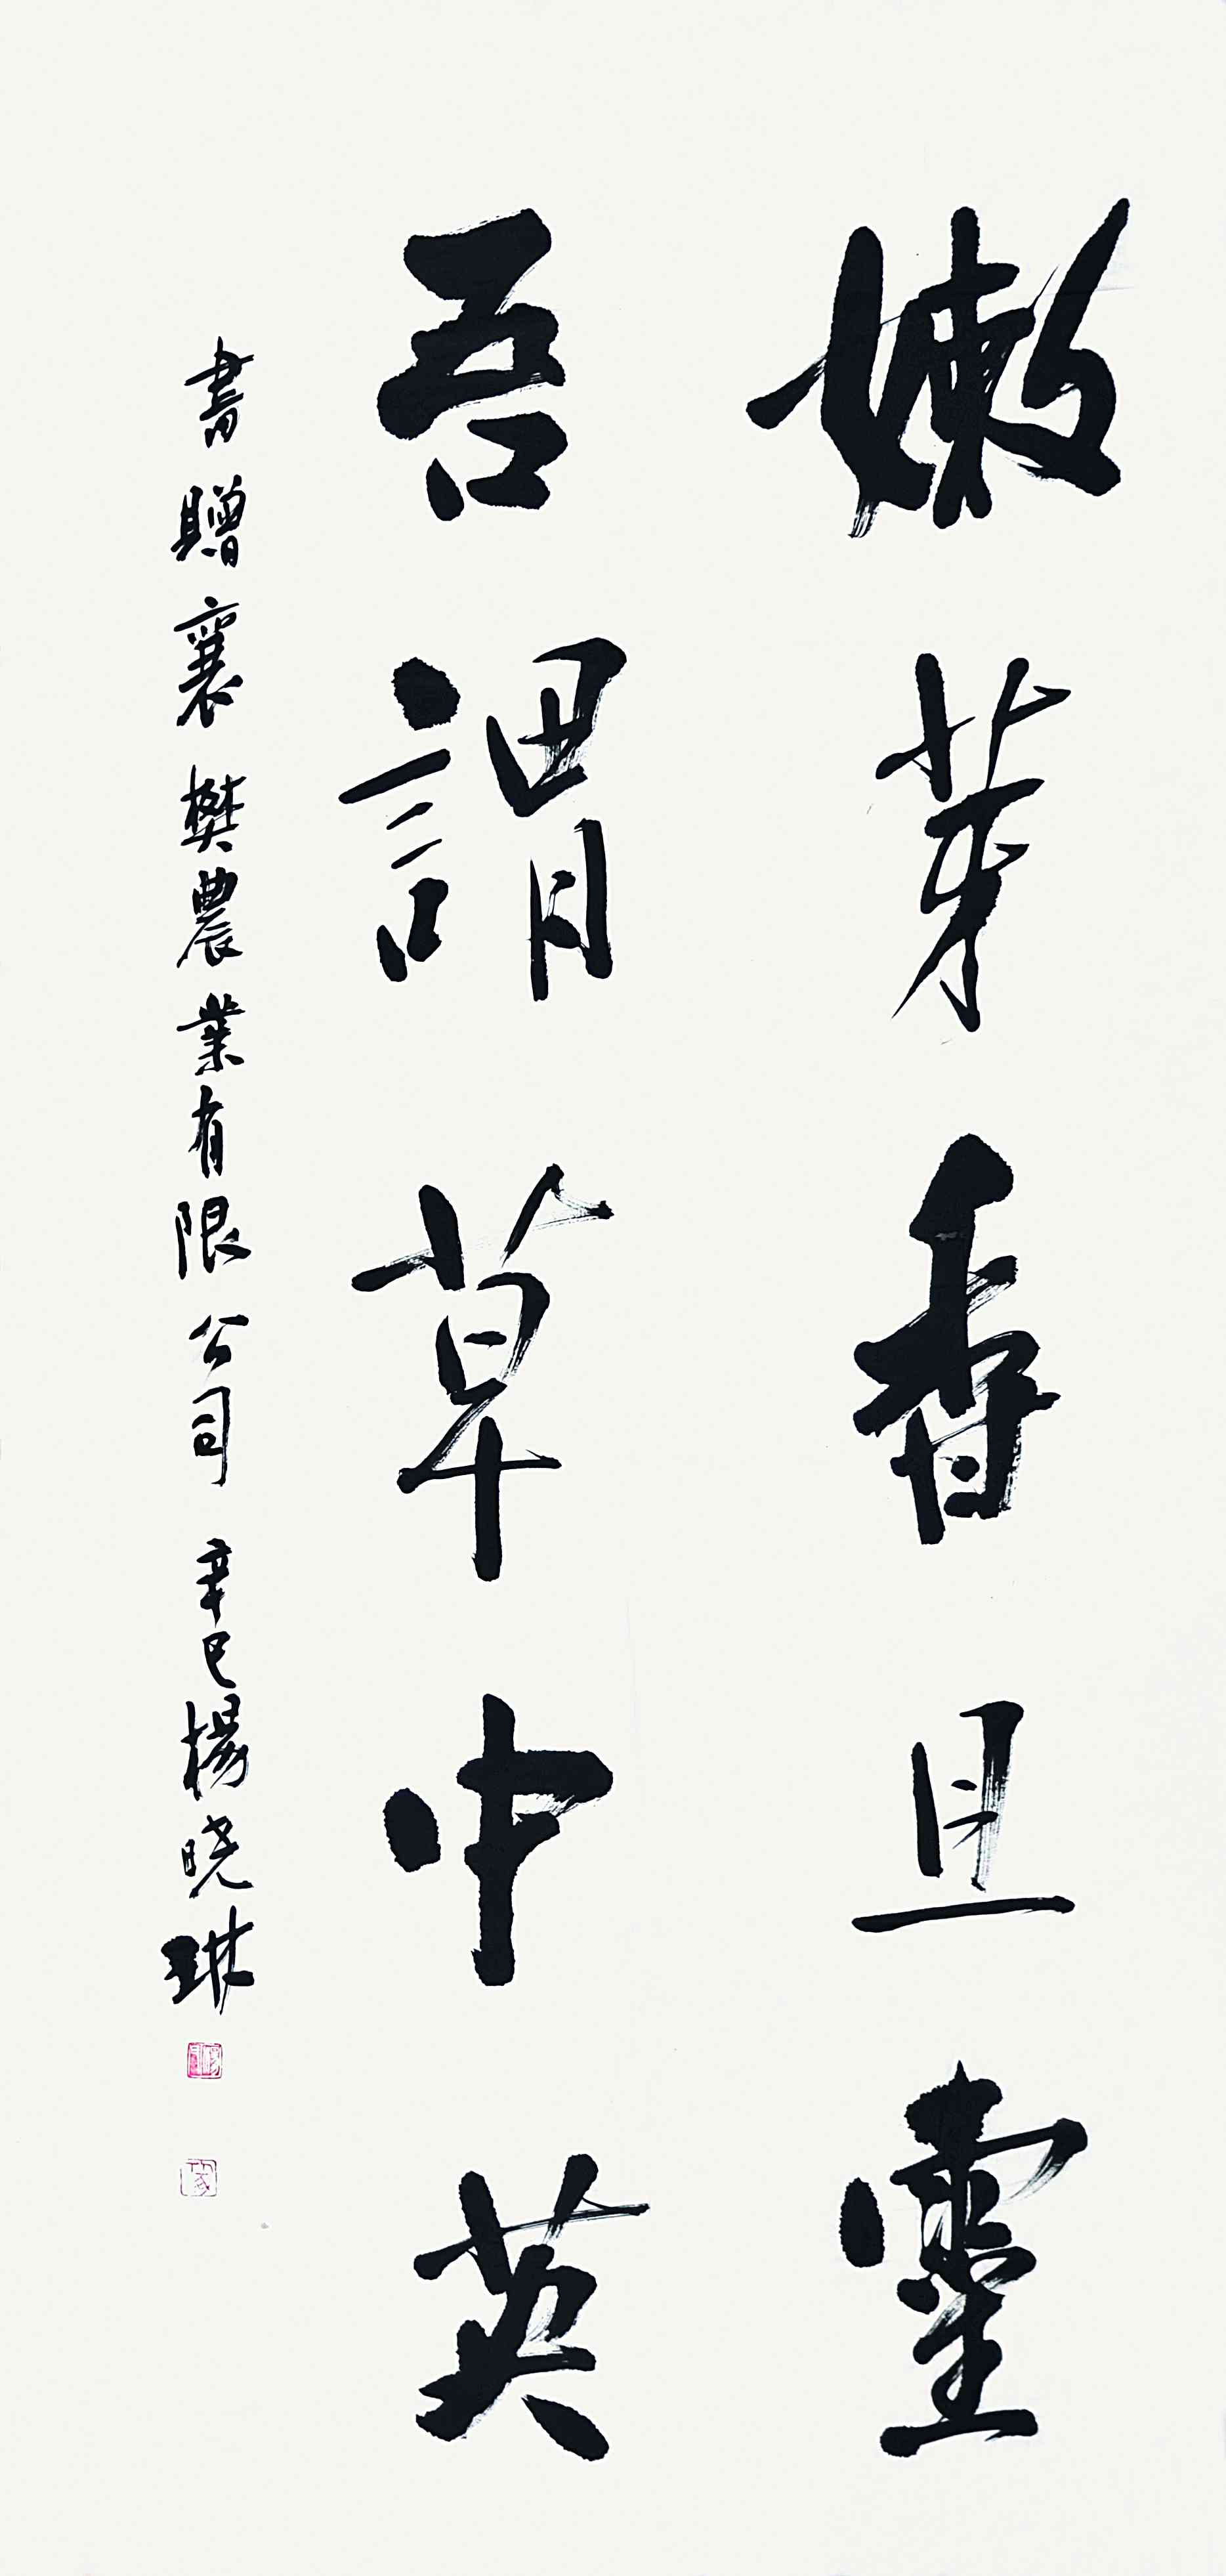 嫩芽香且靈
吾謂草中英
書贈襄樊農業有限公司 辛巳楊晓琳